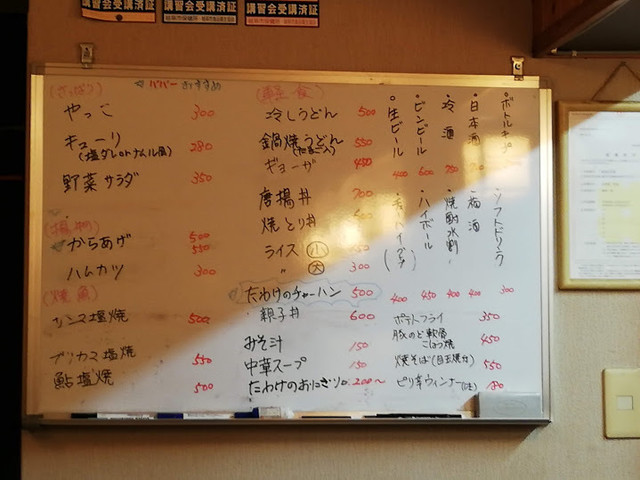 講習会受講済証
講習会受講済証
講習会受講済証
(さっぱり)
おすすめ
やっこ 300
キューリ 280
野菜サラダ 350
(揚物)
からあげ 500
550
ハムカツ 300
(焼魚)
サンマ塩焼 500
ブリカマ塩焼 550
鮎塩焼 500
(軽食)
冷しうどん 500
鍋焼うどん 550
ギョーザ 450
唐揚丼 700
焼とり丼
ライス 小
〃 大 300
たわけのチャーハン 500
親子丼 600
みそ汁 150
中華スープ 150
たわけのおにぎり 200〜
ボトルキープ
・日本酒
・冷酒
・ビンビール 600
・生ビール 400
・ソフトドリンク 300
・梅酒 400
・焼酎水割 400
・ハイボール 450
・チューハイ 400
ポテトフライ 350
豚のど軟骨 450
こしょう焼
焼そば(目玉焼付) 550
ピリ辛ウィンナー